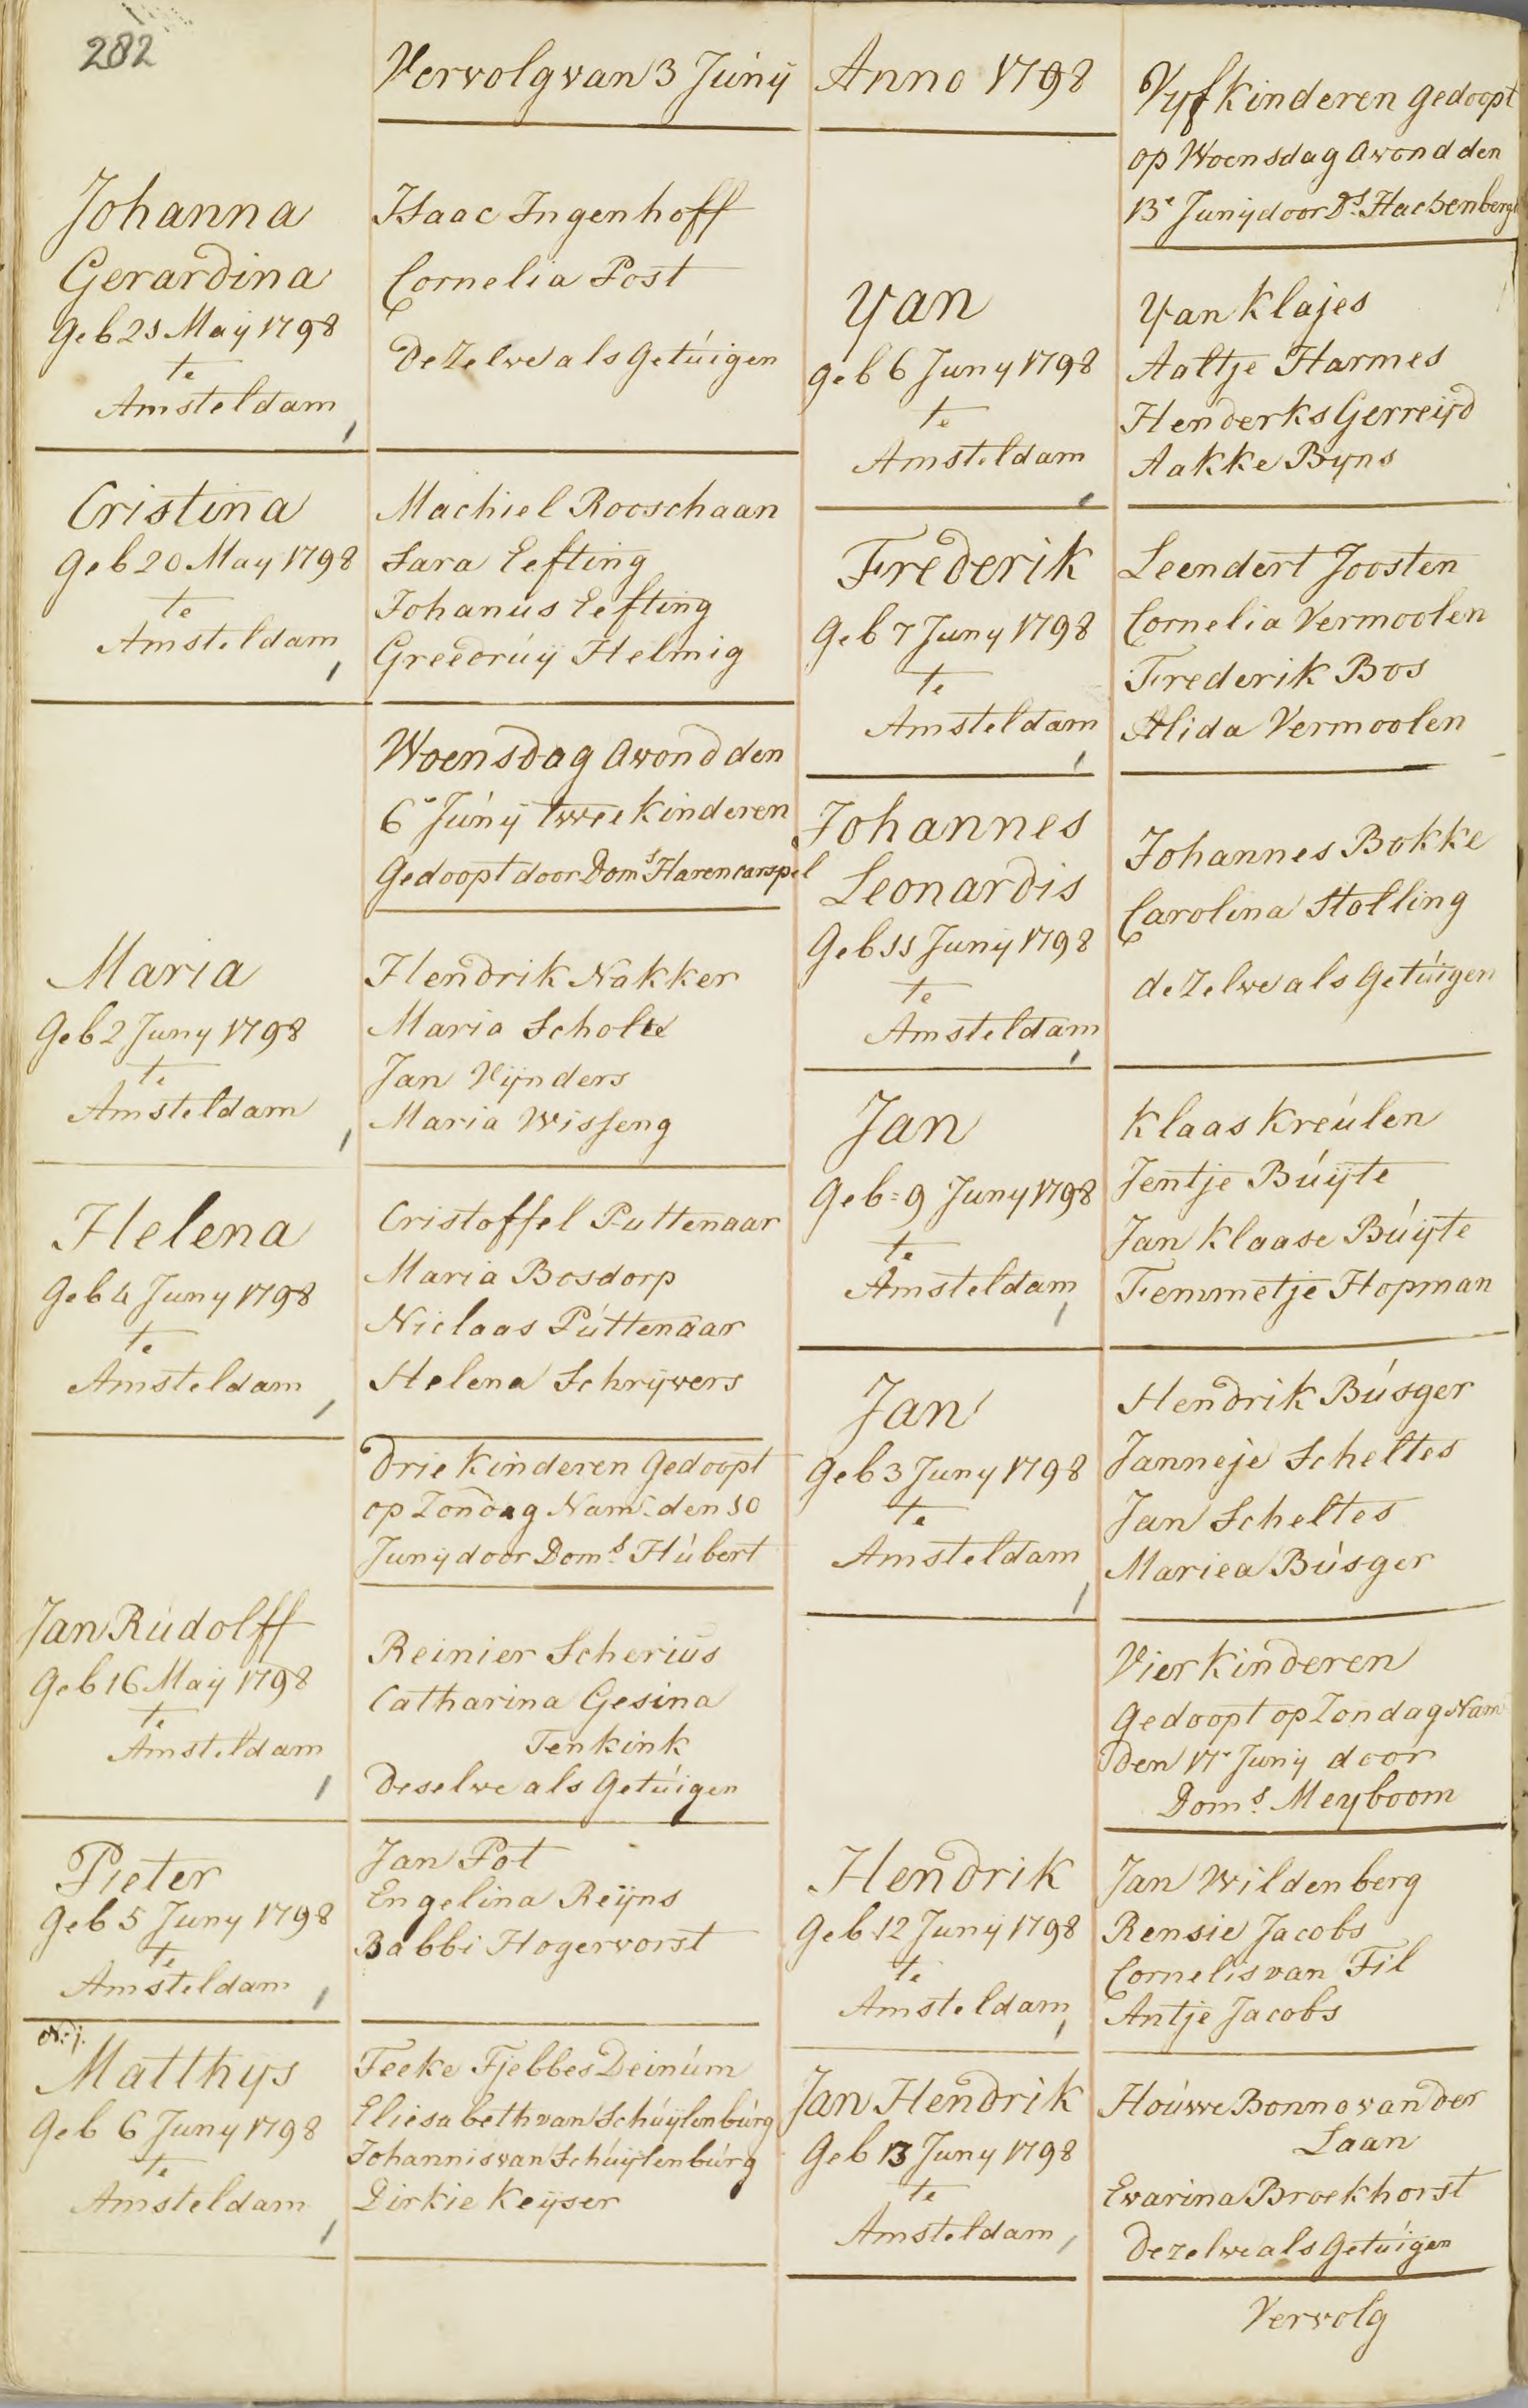 282
Vervolg van 3 Junij
Johanna
Gerardina
Geb 21 Maij 1798
te
Amsteldam
Isaac Ingenhoff
Cornelia Post
De Zelve als Getuigen
Cristina
Geb 20 May 1798
te
Amsteldam
Machiel Rooschaan
Sara Eefting
Johanus Eefting
Greedruij Helmig
Woensdag Avond den
6e Junij twee Kinderen
Gedoopt door Doms Harencarspel
Maria
Geb 2 Juny 1798
te
Amsteldam
Hendrik Nakker
Maria Scholte
Jan Vijnders
Maria Wisseng
Helena
Geb 4 Juny 1798
te
Amsteldam
Cristoffel Puttenaar
Maria Bosdorp
Niclaas Puttenaar
Helena Schrijvers
Drie Kinderen Gedoopt
op Zondag Nam. den 10
Junij door Doms Hubert
Jan Rudolff
Geb 16 Maij 1798
te
Amsteldam
Reinier Scherius
Catharina Gesina
Tenkink
Deselve als Getuigen
Pieter
Geb 5 Juny 1798
te
Amsteldam
Jan Pot
Engelina Reijns
Babbi Hogervorst
Matthys
Geb 6 Juny 1798
te
Amsteldam
Feeke Fjebbes Deinum
Eliesabeth van Schuijlenburg
Johannis van Schuijlenburg
Dirkie Keijser
Anno 1798
Vyf Kinderen gedoopt
op Woensdag Avond den
13e Junij door Ds. Hachenberg
Yan
geb 6 Juny 1798
te
Amsteldam
Yan Klajes
Aaltje Harmes
Henderks Gerreijd
Aakke Byns
Frederik
Geb 7 Juny 1798
te
Amsteldam
Leendert Joosten
Cornelia Vermoolen
Frederik Bos
Alida Vermoolen
Johannes
Leonardis
Geb 11 Junij 1798
te
Amsteldam
Johannes Bokke
Carolina Stolling
de Zelve als Getuigen
Jan
Geb = 9 Juny 1798
te
Amsteldam
Klaas Kreulen
Jentje Buijte
Jan Klaase Buijte
Femmetje Hopman
Jan
Geb 3 Juny 1798
te
Amsteldam
Hendrik Busger
Janneje Scheltes
Jan Scheltes
Mariea Busger
Vier Kinderen
Gedoopt op Zondag Nam
Den 17e Junij door
Doms. Meyboom
Hendrik
Geb 12 Junij 1798
te
Amsteldam
Jan Wildenberg
Rensie Jacobs
Cornelis van Til
Antje Jacobs
Jan Hendrik
Geb 13 Juny 1798
te
Amsteldam
Houwe Bonno van der
Laan
Evarina Broekhorst
Dezelve als Getuigen
Vervolg